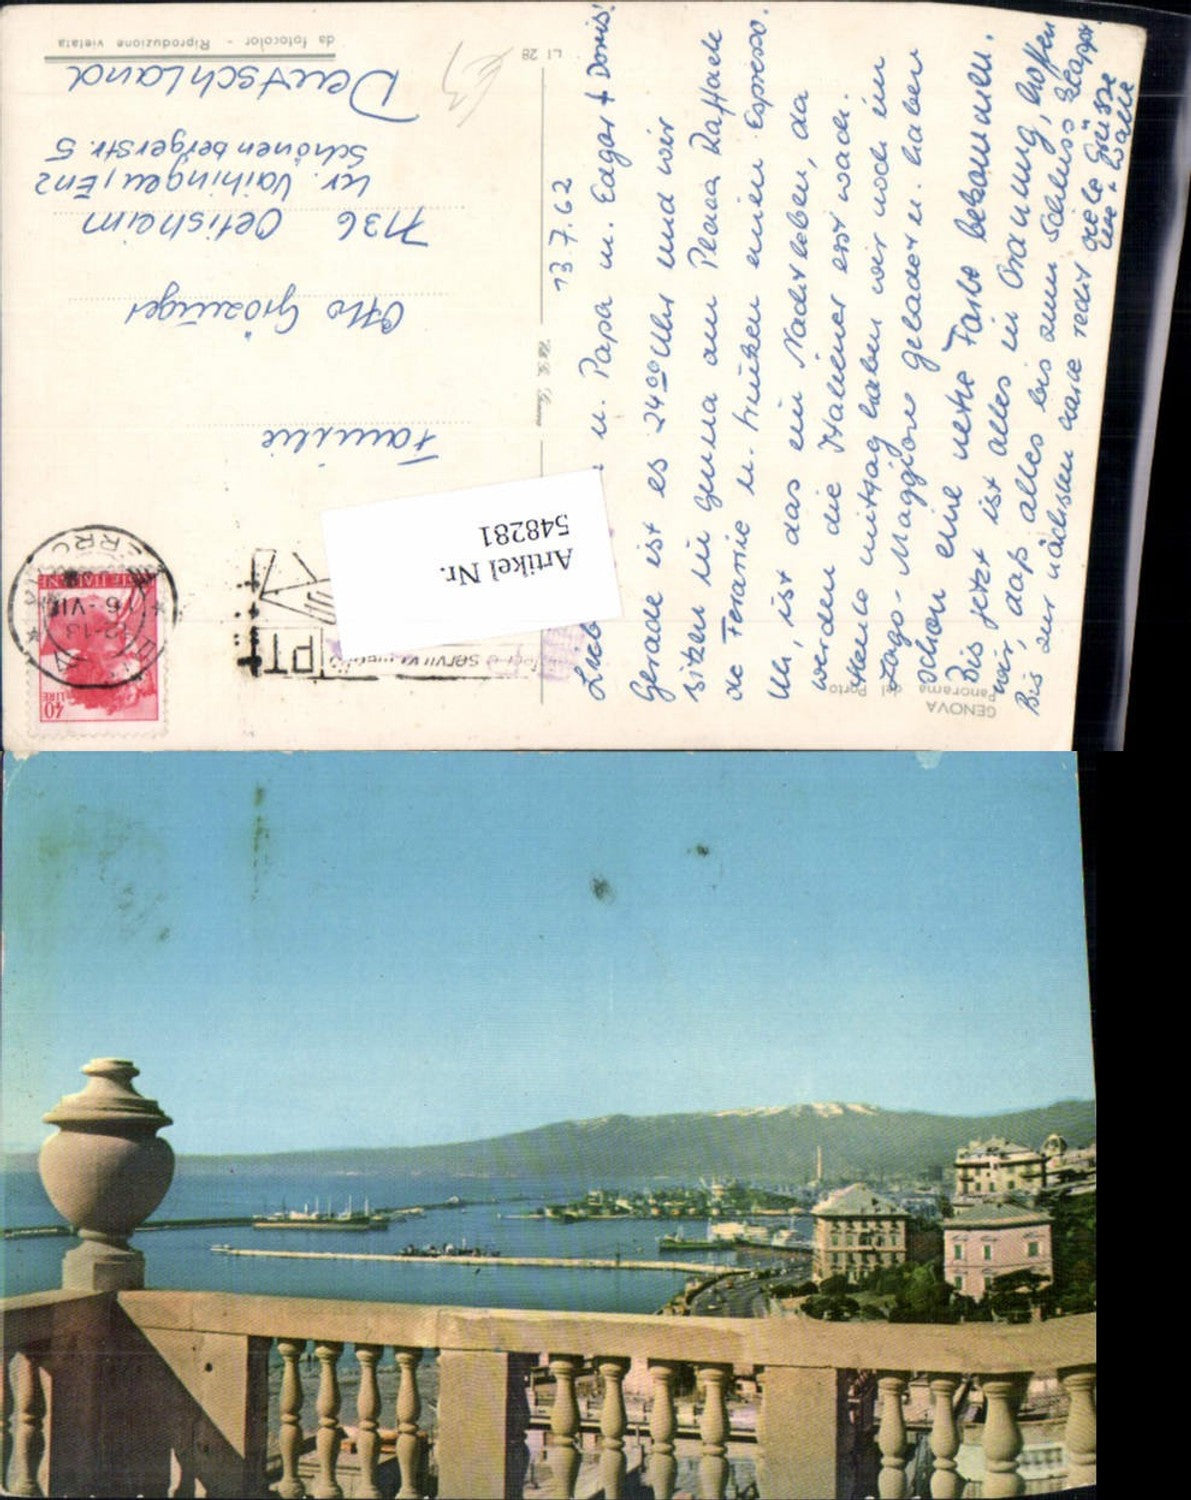 13.7.62
u. Papa m. Edgar + Doris!
Gerade ist es 24⁰⁰ Uhr und wir
sitzen in Genua am Piazza Raffaele
de Ferarrie u. trinken einen Espresso.
Uh, ist das ein Nachtleben, da
werden die Italiener erst wach.
Heute mittag haben wir noch im
Lago-Maggiore gebadet u. haben
schon eine nette Farbe bekommen.
Bis jetzt ist alles in Ordnung, hoffen
wir, daß alles bis zum Schluß klappt.
Bis zur nächsten Karte recht viele Grüße
Familie
Otto
7136 Oetisheim
Kr. Vaihingen/Enz
Schönenbergerstr. 5
Deutschland
GENOVA
Panorama del Porto
LI 28
da fotocolor - Riproduzione vietata
Artikel Nr.
548281
40
LIRE
PT